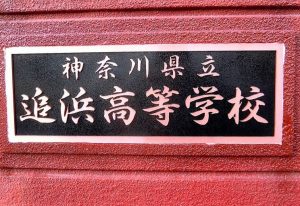 神奈川県立
追浜高等学校